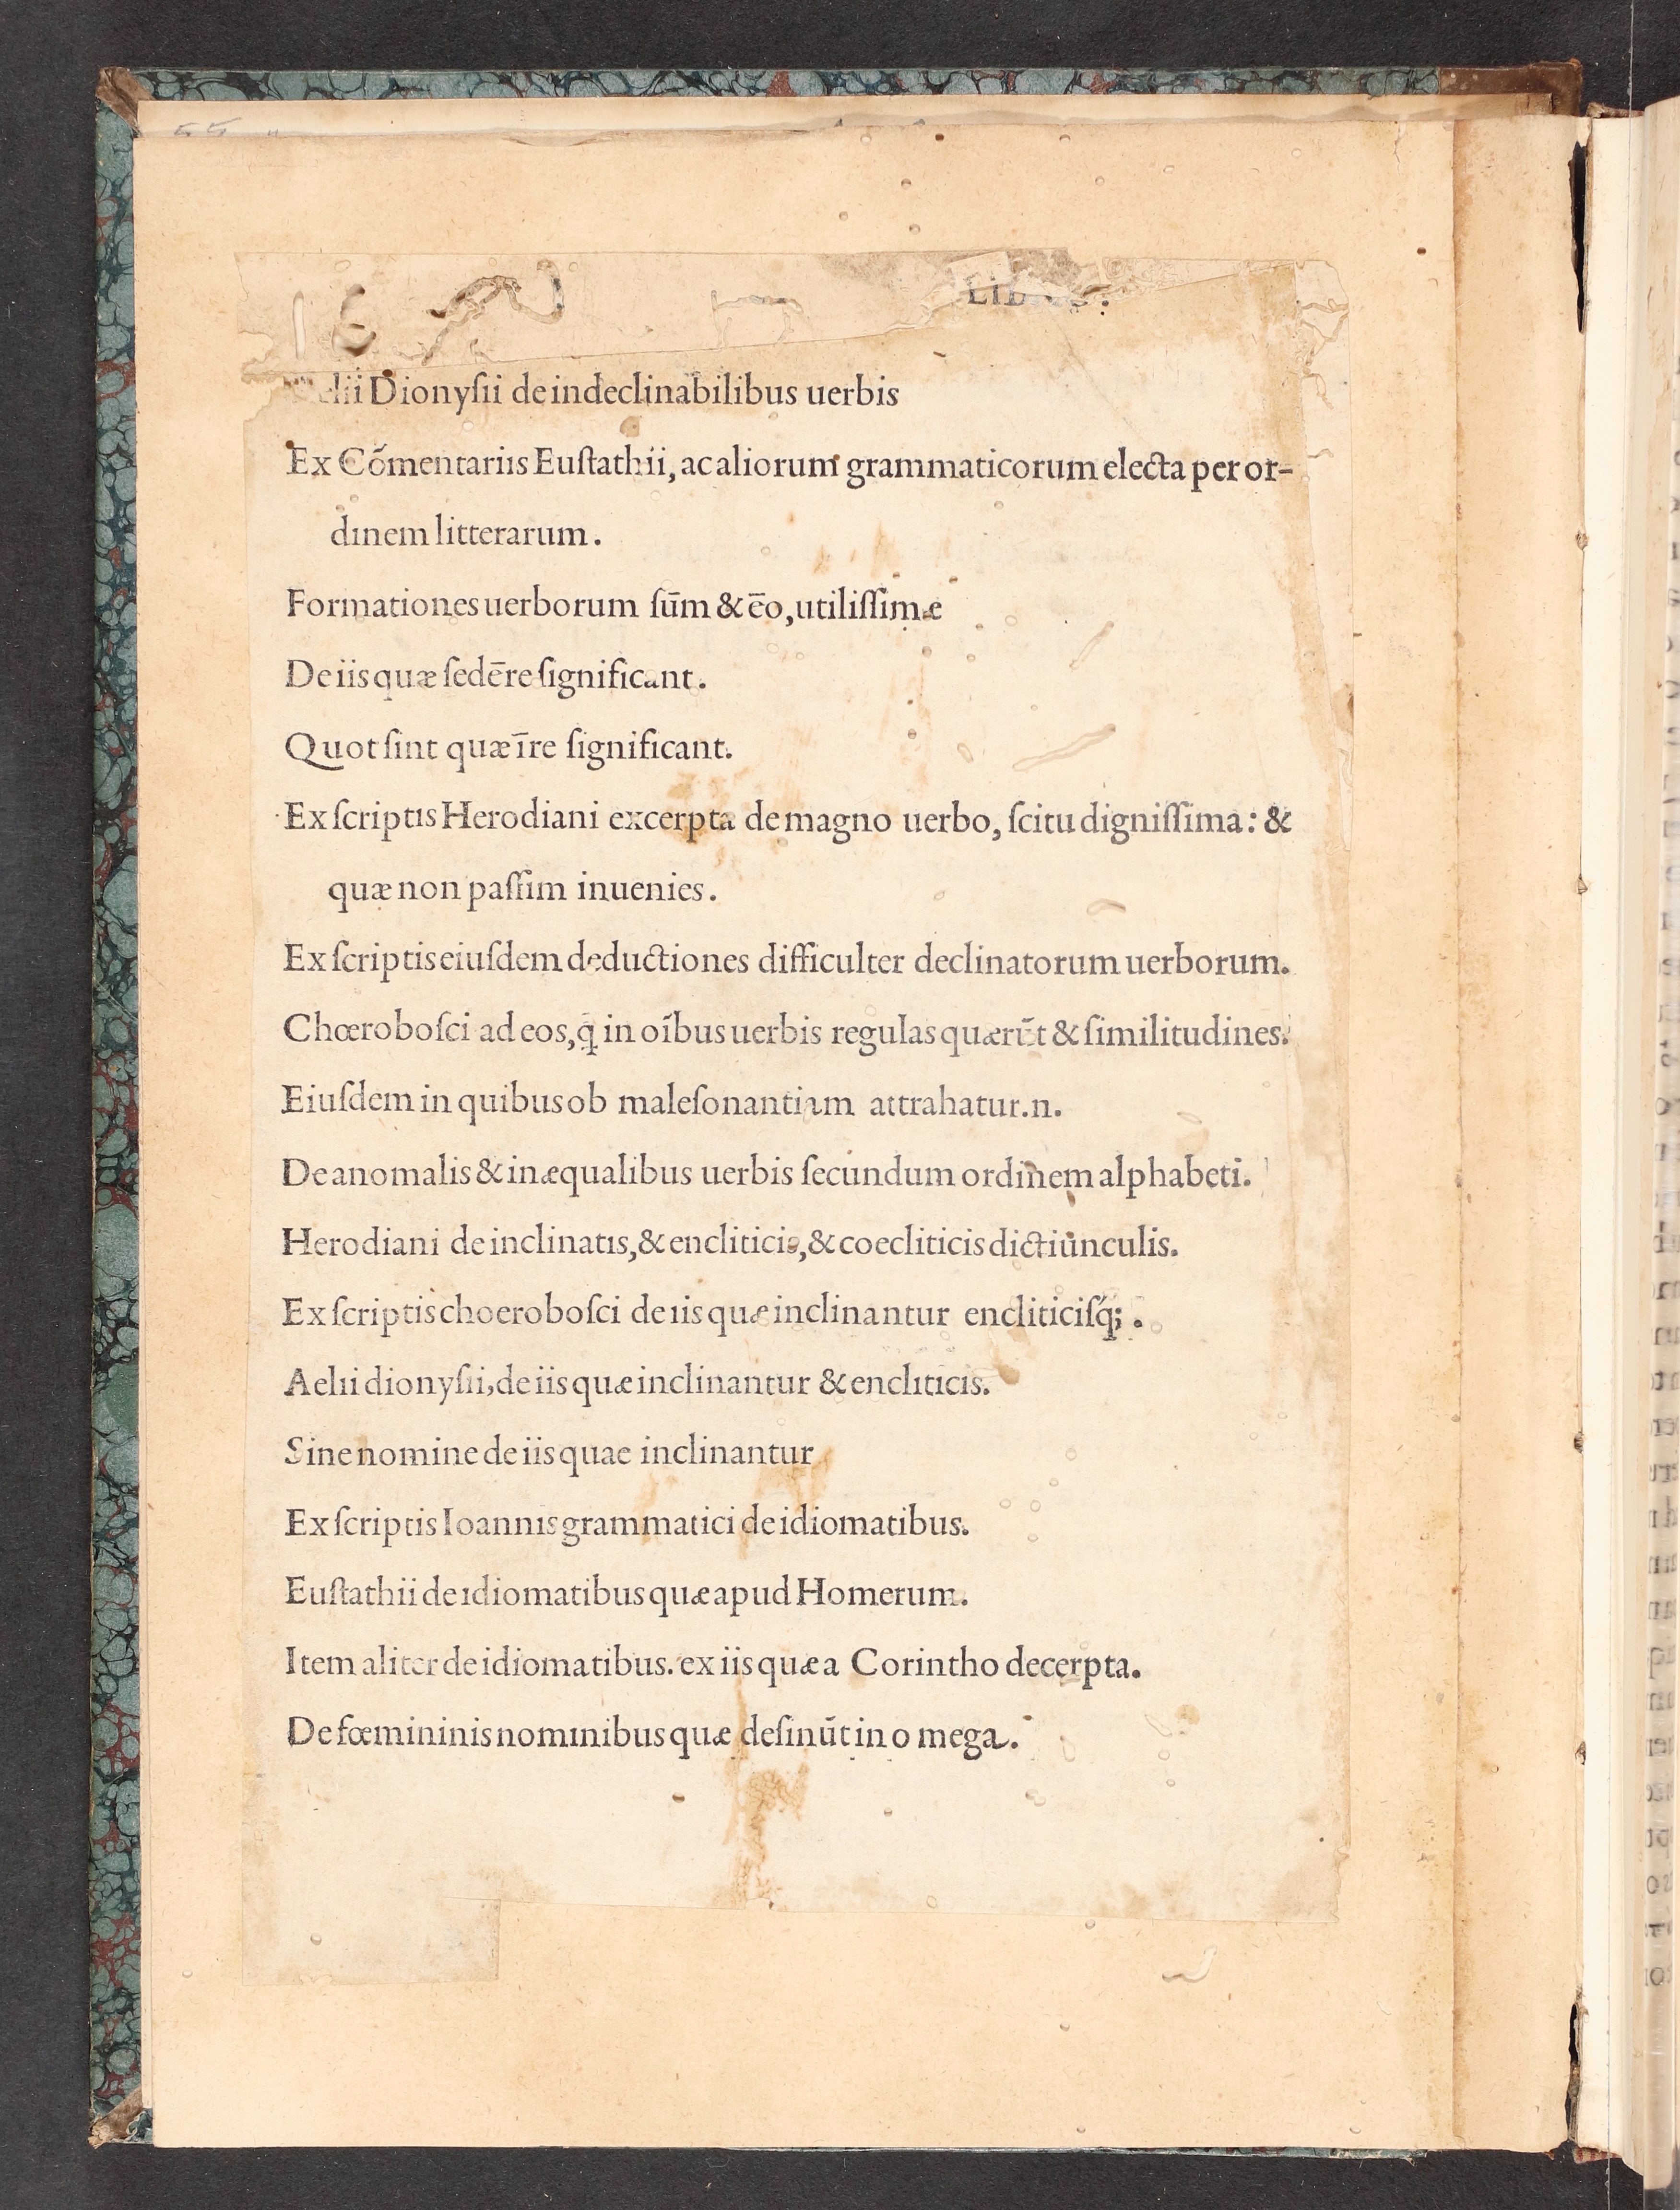 Dionyſii de indeclinabilibus uerbis
Ex Cõmentariis Euſtathii, ac aliorum grammaticorum electa per or-
dinem litterarum.
Formationes uerborum ſūm & ēo, utiliſſimæ
De iis quæ ſedēre ſignificant.
Quot ſint quæ īre ſignificant.
Ex ſcriptis Herodiani excerpta de magno uerbo, ſcitu digniſſima: &
quæ non paſſim inuenies.
Ex ſcriptis eiuſdem deductiones difficulter declinatorum uerborum.
Chœroboſci ad eos, q̃ in oĩbus uerbis regulas quærūt & ſimilitudines.
Eiuſdem in quibus ob maleſonantiam attrahatur.n.
De anomalis & inæqualibus uerbis ſecundum ordinem alphabeti.
Herodiani de inclinatis, & encliticis, & coecliticis dictiunculis.
Ex ſcriptis choeroboſci de iis quæ inclinantur encliticiſq́;.
Aelii dionyſii, de iis quæ inclinantur & encliticis.
Sine nomine de iis quae inclinantur
Ex ſcriptis Ioannis grammatici de idiomatibus.
Euſtathii de idiomatibus quæ apud Homerum.
Item aliter de idiomatibus. ex iis quæ a Corintho decerpta.
De fœmininis nominibus quæ deſinūt in o mega.